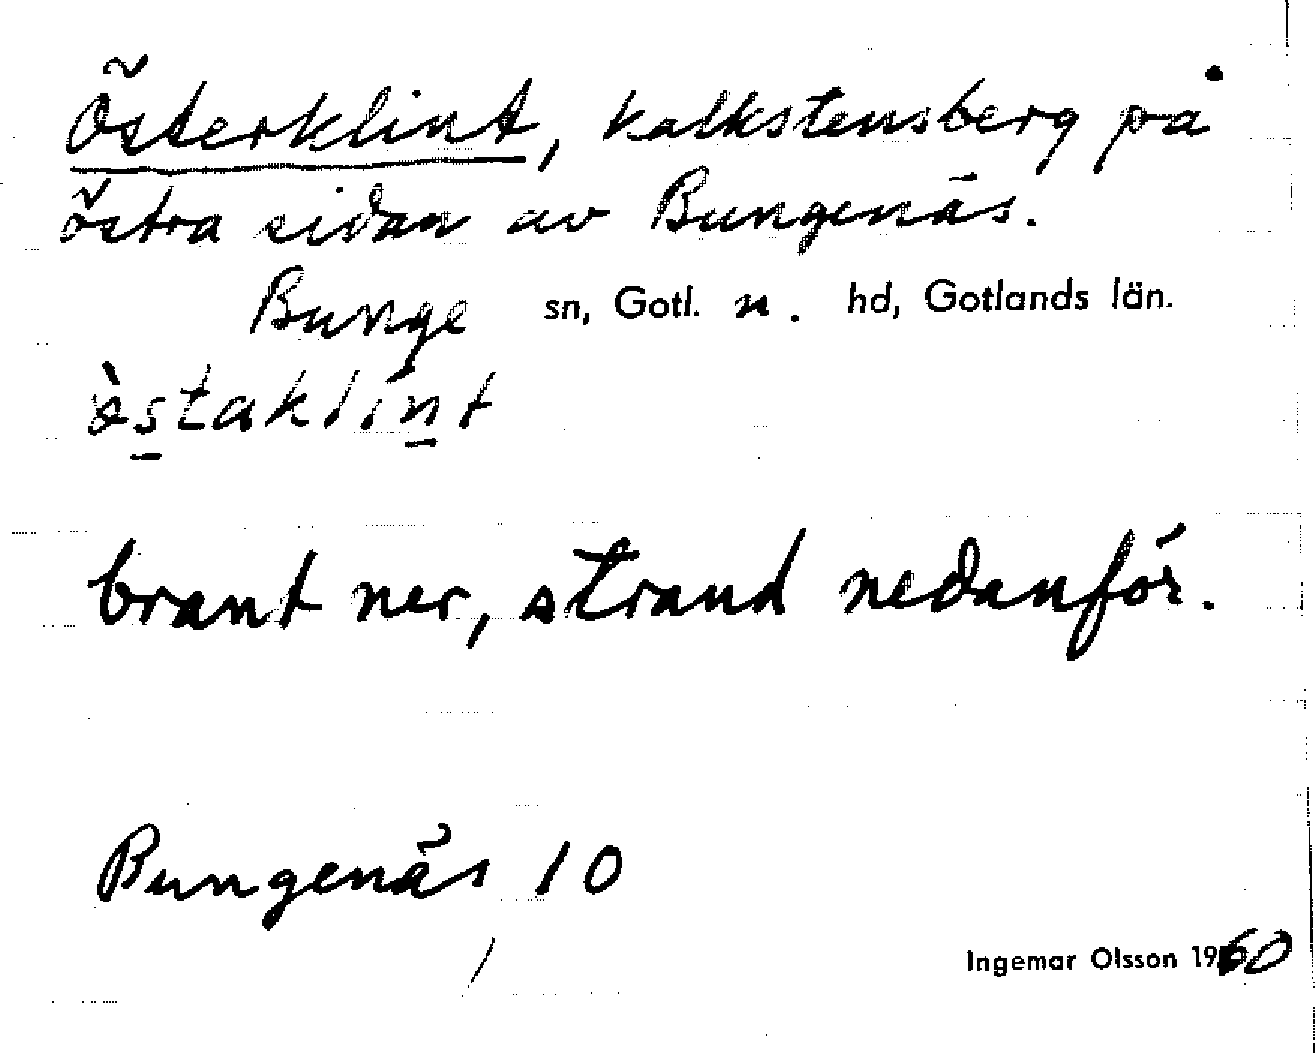 Österklint, kalkstensberg på
östra sidan av Bungenäs.
Bunge sn, Gotl. n. hd, Gotlands län.
ò̀staklint
brant ner, strand nedanför.
Bungenäs 10
Ingemar Olsson 1960